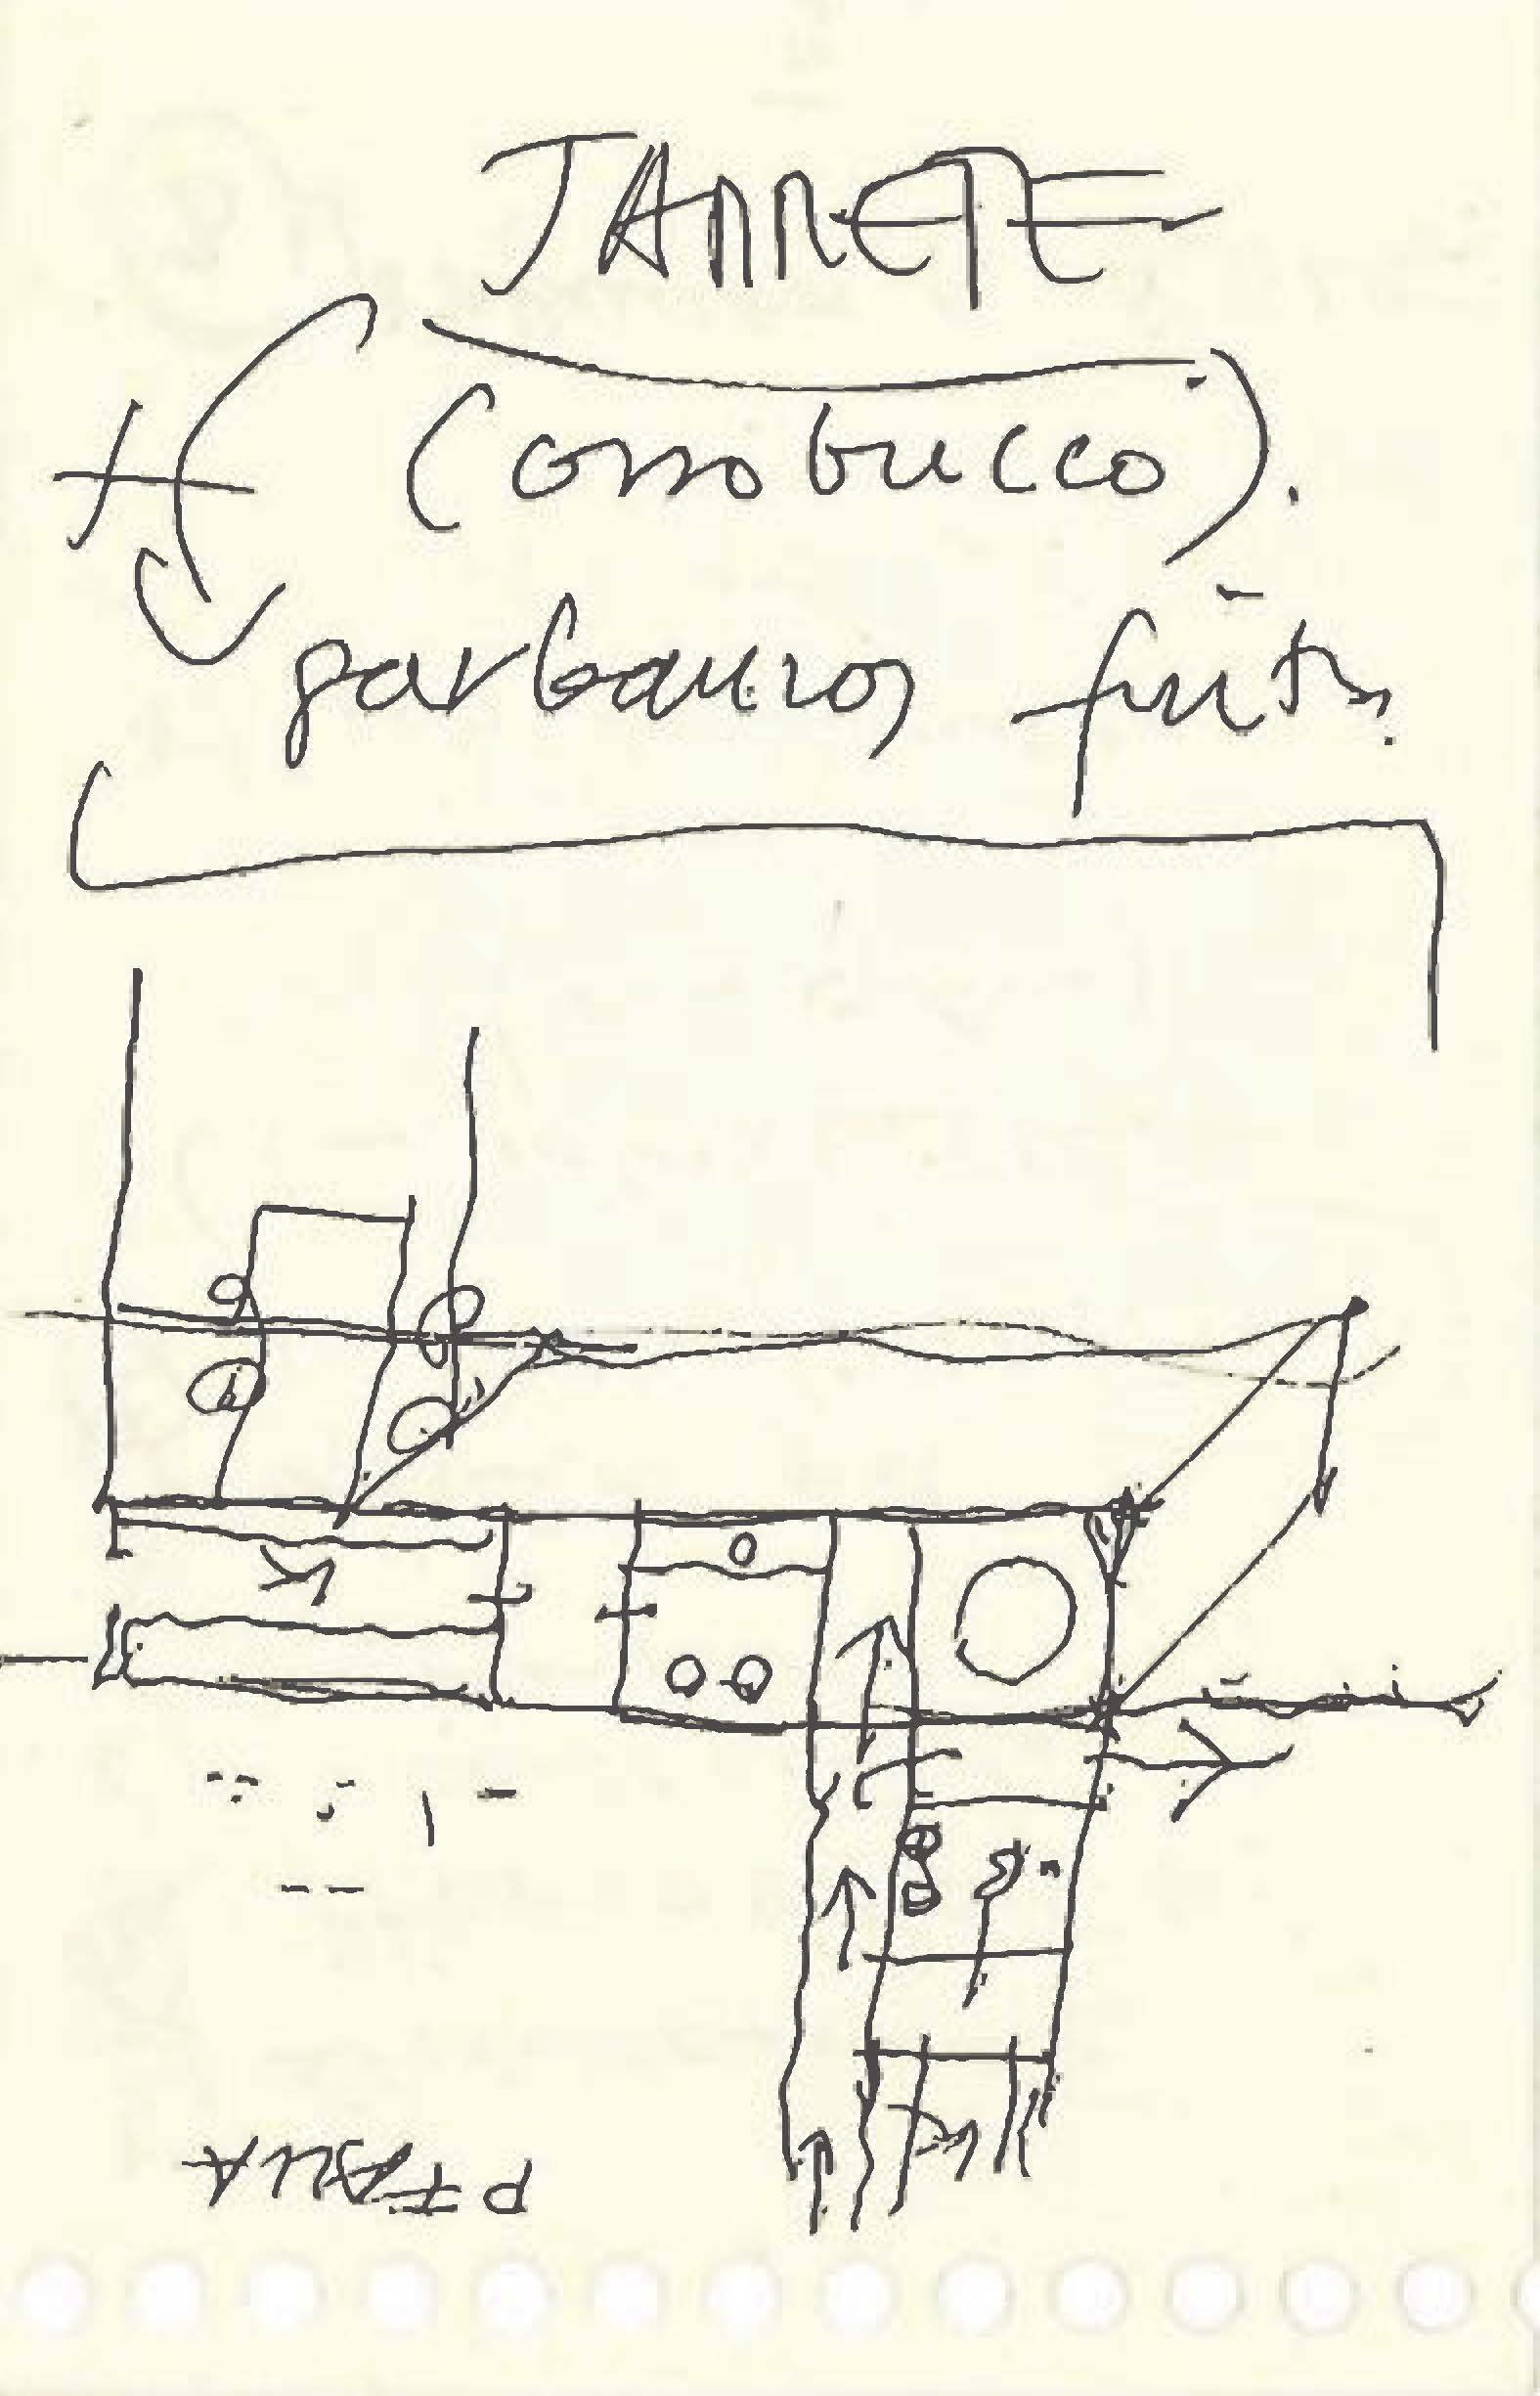 JARRETE
(ossobucco).
garbanzos fritos.